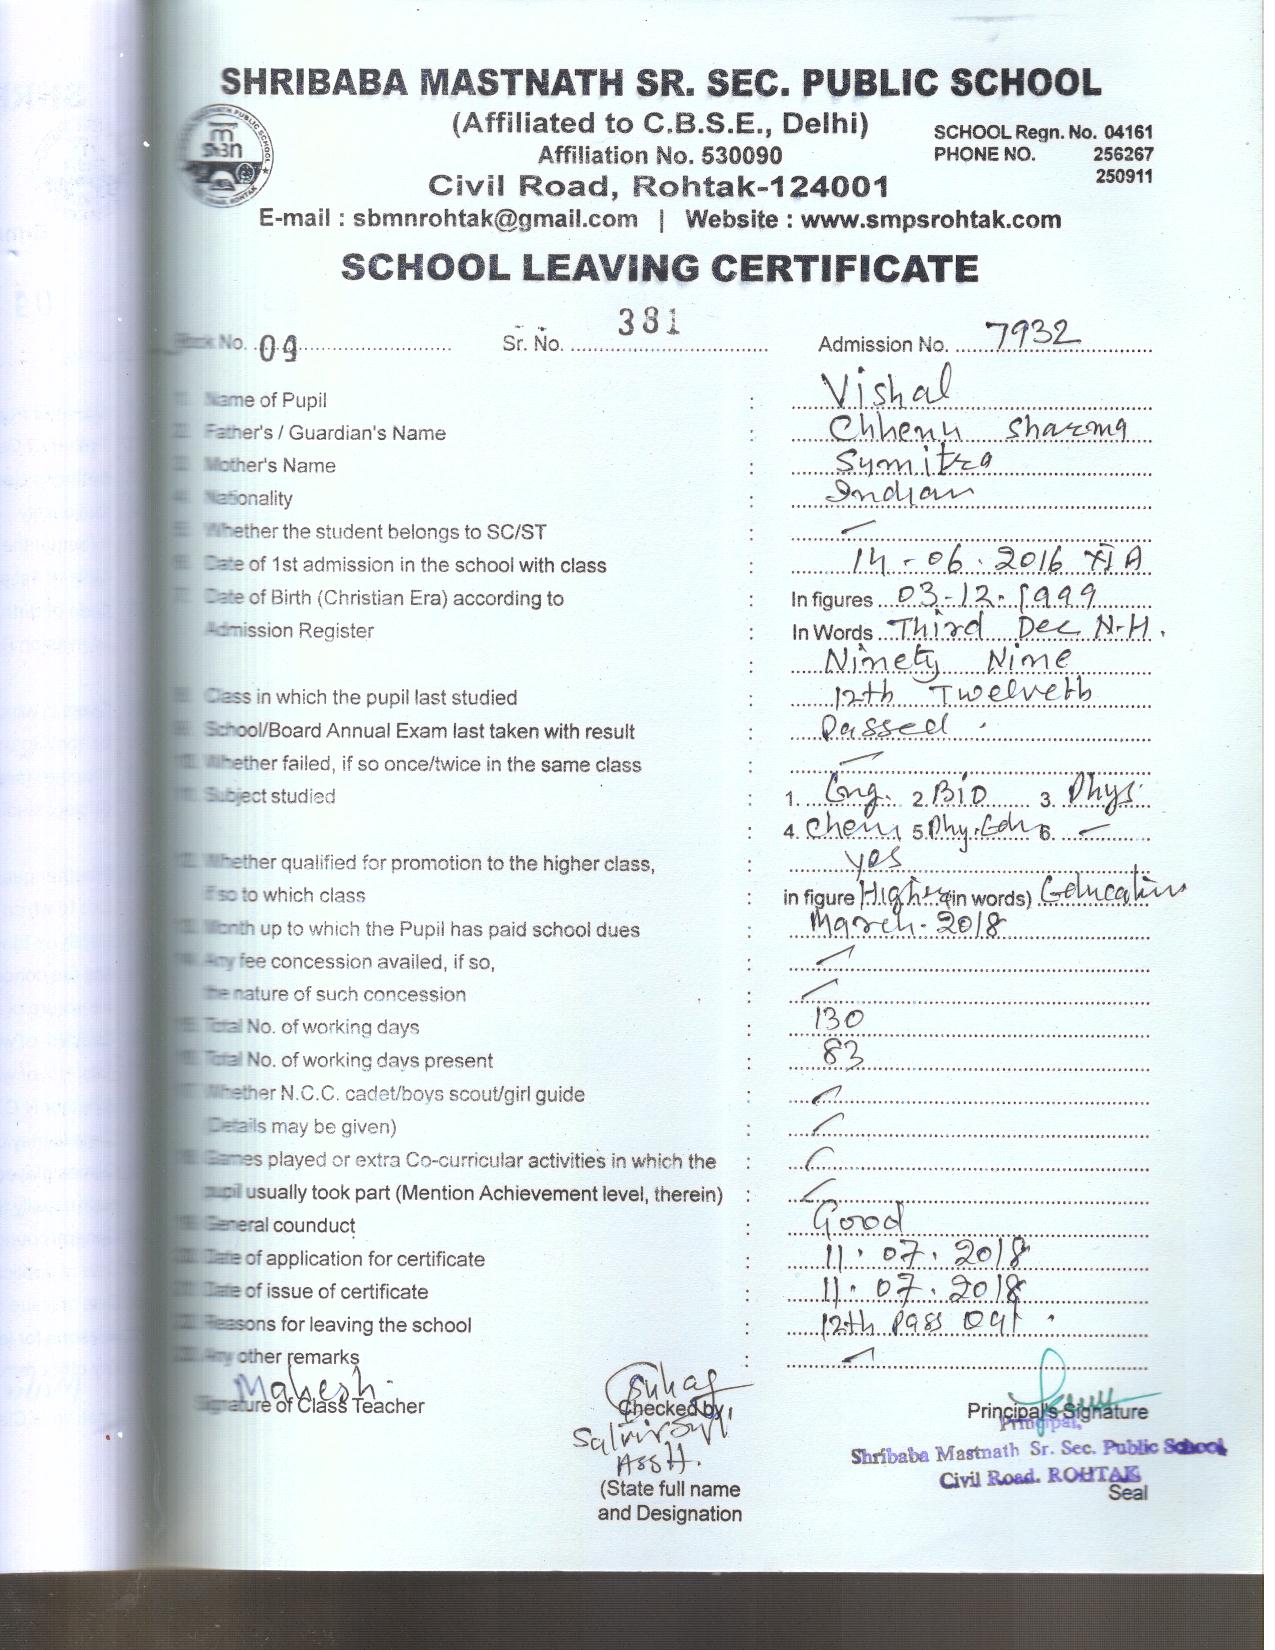 SHRIBABA MASTNATH SR. SEC. PUBLIC SCHOOL
(Affiliated to C.B.S.E., Delhi)
Affiliation No. 530090
SCHOOL Regn. No. 04161
PHONE NO. 256267
250911
Civil Road, Rohtak-124001
E-mail : sbmnrohtak@gmail.com | Website : www.smpsrohtak.com
SCHOOL LEAVING CERTIFICATE
Book No. 09 Sr. No. 381 Admission No. 7932
1. Name of Pupil : Vishal
2. Father's / Guardian's Name : Chhenu Sharma
3. Mother's Name : Sumitra
4. Nationality : Indian
5. Whether the student belongs to SC/ST : —
6. Date of 1st admission in the school with class : 14-06.2016 XI A
7. Date of Birth (Christian Era) according to : In figures 03-12-1999
Admission Register : In Words Third Dec N-H.
: Ninety Nine
8. Class in which the pupil last studied : 12th Twelveth
9. School/Board Annual Exam last taken with result : Passed .
10. Whether failed, if so once/twice in the same class : —
11. Subject studied : 1. Eng. 2. BiO 3. Phys.
: 4. Chem 5. Phy.Edn 6. —
12. Whether qualified for promotion to the higher class, : yes
if so to which class : in figure Higher (in words) Education
13. Month up to which the Pupil has paid school dues : March-2018
14. Any fee concession availed, if so, : —
the nature of such concession : —
15. Total No. of working days : 130
16. Total No. of working days present : 83
17. Whether N.C.C. cadet/boys scout/girl guide : —
Details may be given) : —
18. Games played or extra Co-curricular activities in which the : —
pupil usually took part (Mention Achievement level, therein) : —
19. General counduct : Good
20. Date of application for certificate : 11.07.2018
21. Date of issue of certificate : 11.07.2018
22. Reasons for leaving the school : 12th Pass Out .
23. Any other remarks : —
Mahesh
Signature of Class Teacher Checked by Principal's Signature
Principal,
Shribaba Mastnath Sr. Sec. Public School
Asstt.
Civil Road. ROHTAK
(State full name Seal
and Designation